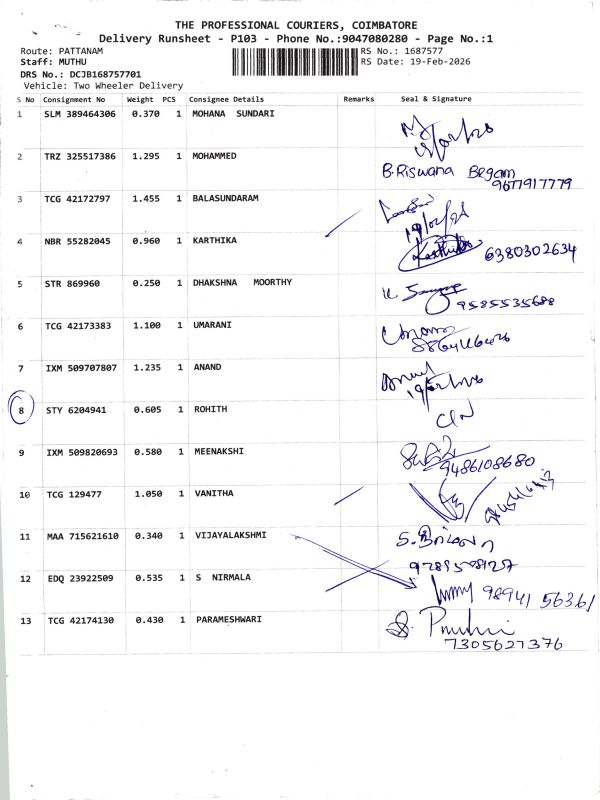 THE PROFESSIONAL COURIERS, COIMBATORE
Delivery Runsheet - P103 - Phone No.:9047080280 - Page No.:1
Route: PATTANAM RS No.: 1687577
Staff: MUTHU RS Date: 19-Feb-2026
DRS No.: DCJB168757701
Vehicle: Two Wheeler Delivery
S No Consignment No Weight PCS Consignee Details Remarks Seal & Signature
1 SLM 389464306 0.370 1 MOHANA SUNDARI
2 TRZ 325517386 1.295 1 MOHAMMED B.Riswana Begam
9677917779
3 TCG 42172797 1.455 1 BALASUNDARAM
4 NBR 55282045 0.960 1 KARTHIKA Karthika 6380302634
5 STR 869960 0.250 1 DHAKSHNA MOORTHY
9585535688
6 TCG 42173383 1.100 1 UMARANI
7 IXM 509707807 1.235 1 ANAND
8 STY 6204941 0.605 1 ROHITH
9 IXM 509820693 0.580 1 MEENAKSHI
9486108680
10 TCG 129477 1.050 1 VANITHA
11 MAA 715621610 0.340 1 VIJAYALAKSHMI
12 EDQ 23922509 0.535 1 S NIRMALA
98941 56361
13 TCG 42174130 0.430 1 PARAMESHWARI
7305627376